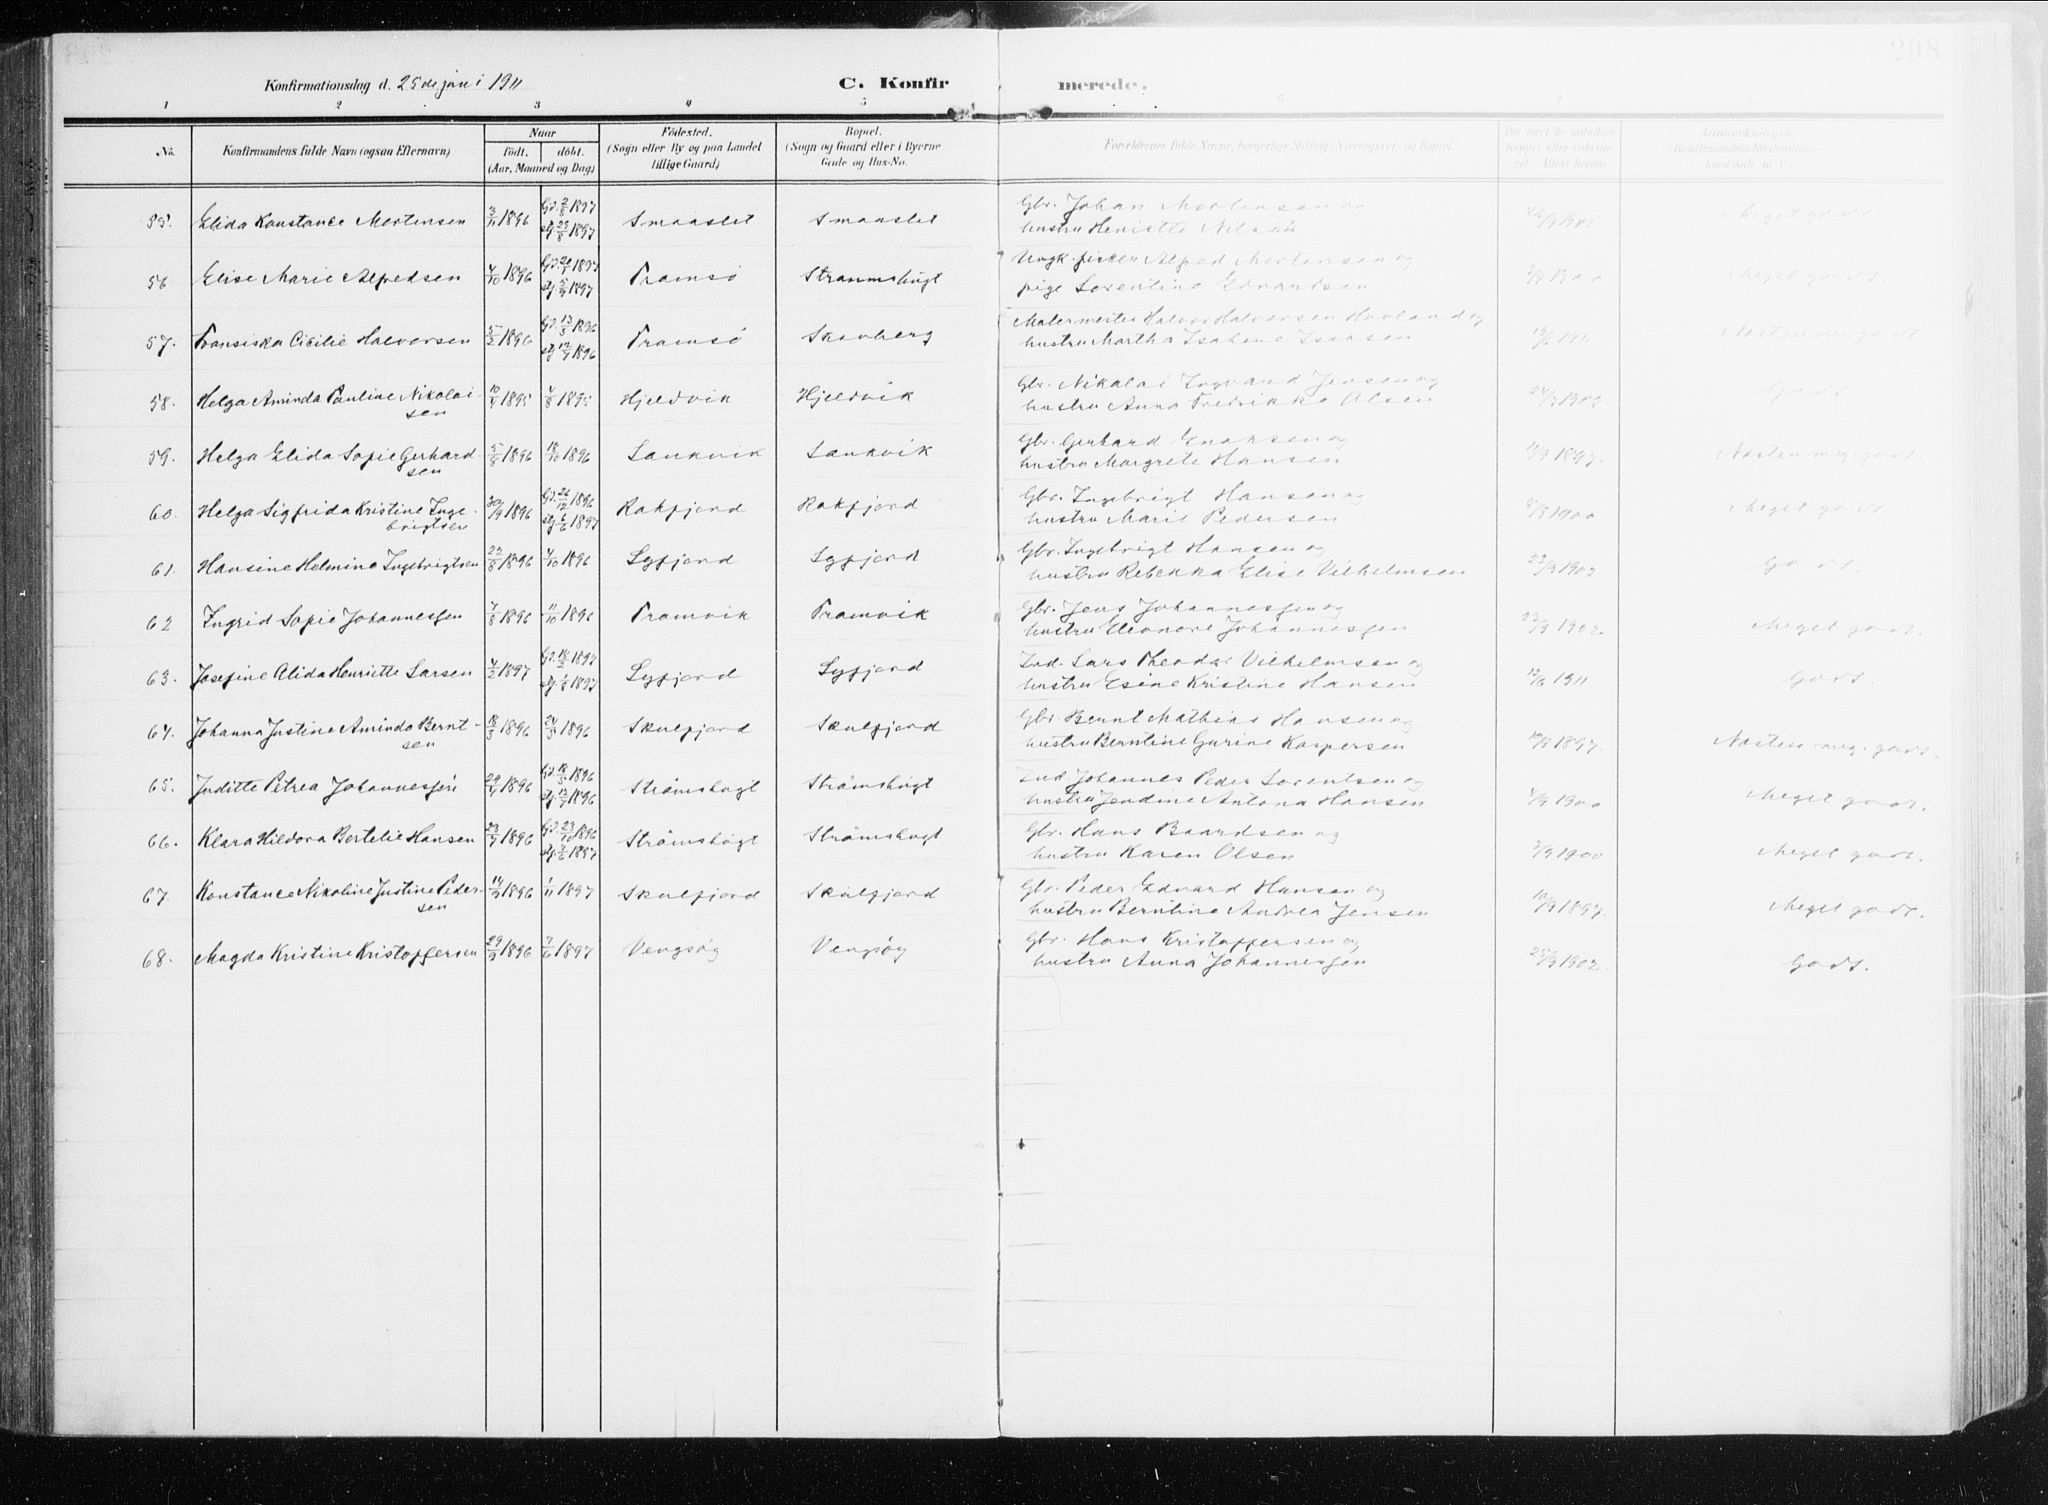 208
Konfirmationsdag d. 25 de juni 1911 C. Konfirmerede.
1 2 3 4 5 6 7
No. Konfirmandens fulde Navn (ogsaa Efternavn) Naar født. døbt. (Aar, Maaned og Dag) Fødested. (Sogn eller By og paa Landet tillige Gaard) Bopæl. (Sogn og Gaard eller i Byerne Gade og Hus-No. Forældrenes fulde Navne, borgerlige Stilling (Næringsvei) og Bopæl Om havt de naturlige Kopper eller vaksineret. Attest herom. Anmerkninger. (Konfirmandens Kristendomskundskab m. V.)
55. Elida Konstance Mortensen 3/11 1896 Gd. 2/8 1897 Smaaslet Smaaslet Gbr. Johan Mortensen og
stg. 23/8 1897 hustru Henriette Meget godt.
56 Elise Marie Alfredsen 4/10 1896 1897 Tromsø Straumshügt Ungk. Alfred Mortensen og
stg. 1897 pige Sorentine Edvardsen 1900 Meget godt.
57. Fransiska Cicilie Halvorsen 5/2 1896 Gd. 13/5 1896 Tromsø Skavberg Malermester Halvor Halvorsen Hovland og
stg. 12/7 1896 hustru Martha Isaksen Næsten meg. godt.
58. Helga Aminda Pauline Nikolaisen 10/4 1895 4/8 1895 Hjeldvik Hjeldvik Gbr. Nikolai Ingvard Jensen og
hustru Anna Fredrikke Olsen Godt.
59. Helga Elida Sofie Gerhardsen 5/8 1896 18/10 1896 Saukvik Saukvik Gbr. Gerhard Enoksen og
hustru Margrete Hansen 11/9 1897. Næsten meg. godt.
60. Helga Sigfrida Kristine Ingebrigtsen 30/9 1896 Gd. 26/12 1896 Rakfjord Rakfjord Gbr. Ingebrigt Hansen og
stg. 6/6 1897 hustru Marie Pedersen 8/9 1900 Meget godt
61. Hansine Helmine Ingebrigtsen 22/8 1896 4/10 1896 Sgfjord Sgfjord Gbr. Ingebrigt Hansen og
hustru Rebekka Elise Vilhelmsen 22/9 1902 Godt.
62 Ingrid Sofie Johannessen 7/8 1896 11/10 1896 Tromvik Tromvik Gbr. Jens Johannessen og
hustru Eleonore Johannessen 22/9 1902. Meget godt.
63. Josefine Alida Henriette Larsen 4/2 1897 Gd. 18/2 1897 Sgfjord Sgfjord Ind. Lars Theodor Vilhelmsen og
stg. 1/8 1897 hustru Esine Kristine Hansen 1911 Godt.
64. Johanna Justine Aminda Berntsen 18/3 1896 24/5 1896 Skulfjord Skulfjord Gbr. Bernt Mathias Hansen og
hustru Berntine Gurine Kaspersen 10/9 1897. Næsten meg. godt.
65. Juditte Petrea Johannessen 29/4 1896 Gd. 18/5 1896 Strømshøgt Strømshügt Ind. Johannes Peder Sorentsen og
stg. 12/7 1896 hustru Jendine Antona Hansen 1900 Meget godt.
66. Klara Hildora Bertelie Hansen 23/7 1896 Gd. 23/10 1896 Strømshøgt Strømshugt Gbr. Hans Baardsen og
stg. 7/6 1897 hustru Karen Olsen 1900 Meget godt.
67. Konstance Nikoline Justine Pedersen 14/9 1896 1/11 1897 Skulfjord Skulfjord Gbr. Peder Edvard Hansen og
hustru Berntine Andrea Jensen 10/9 1897. Meget godt.
68. Magda Kristine Kristoffersen 29/9 1896 7/6 1897 Vengsøg Vengsøy Gbr. Hans Kristoffersen og
hustru Anna Johannessen 25/9 1902. Godt.